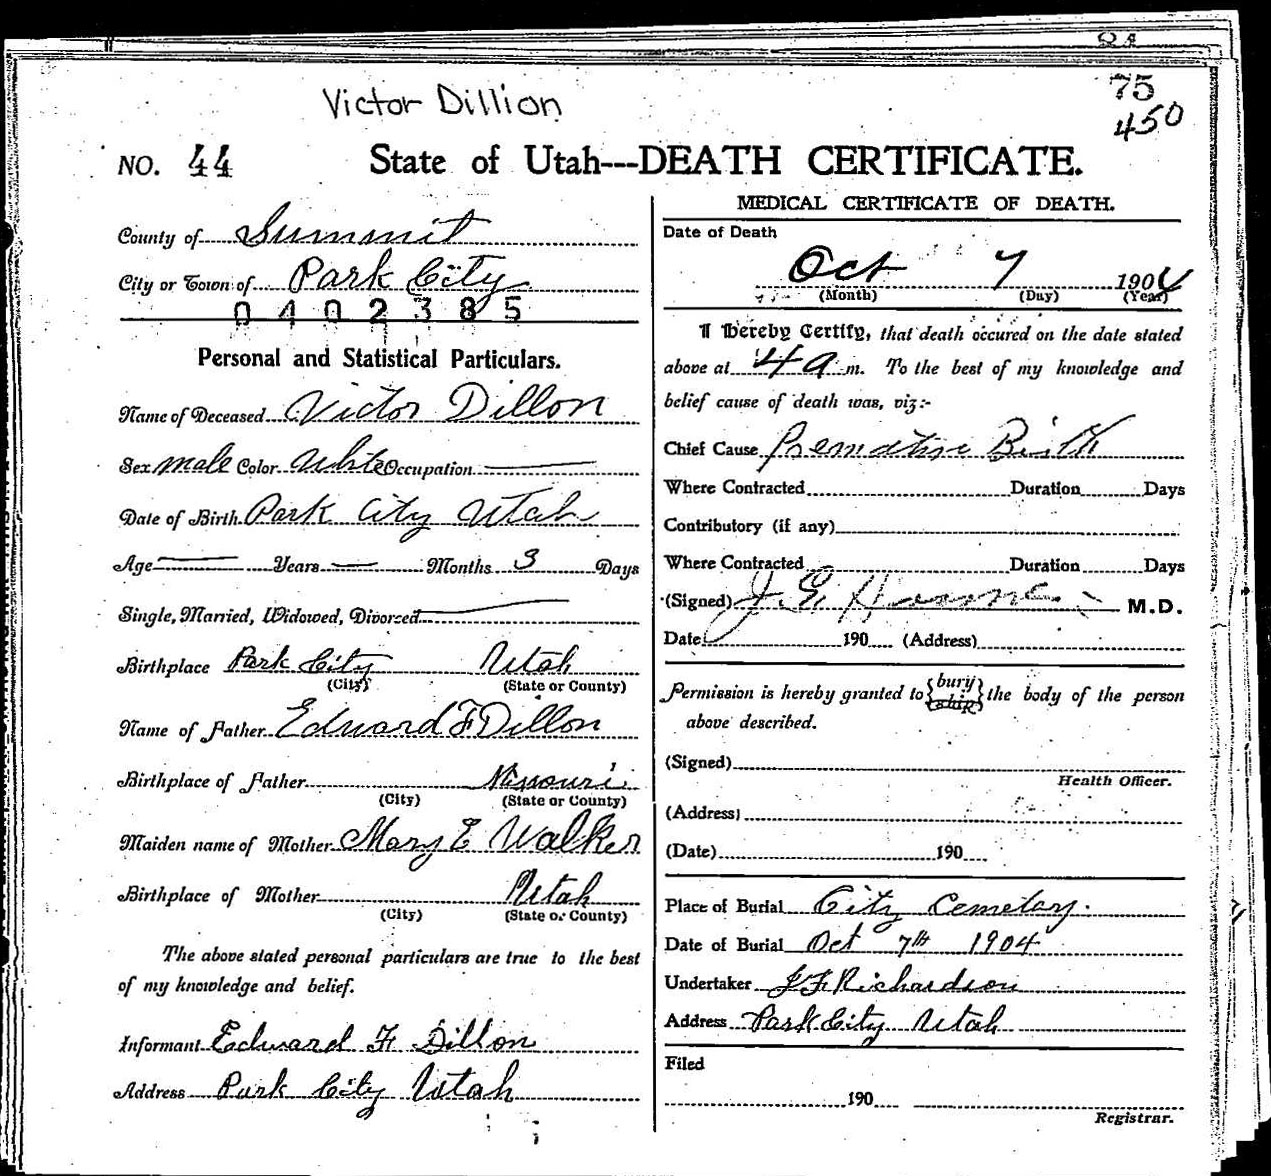 84
75
450
Victor Dillion
NO. 44 State of Utah---DEATH CERTIFICATE.
County of Summit
City or Town of Park City
0402385
Personal and Statistical Particulars.
Name of Deceased Victor Dillon
Sex male Color White Occupation
Date of Birth Park City Utah
Age Years Months 3 Days
Single, Married, Widowed, Divorced
Birthplace Park City Utah
(City) (State or County)
Name of Father Edward F Dillon
Birthplace of Father Missouri
(City) (State or County)
Maiden name of Mother Mary E Walker
Birthplace of Mother Utah
(City) (State or County)
The above stated personal particulars are true to the best
of my knowledge and belief.
Informant Edward F Dillon
Address Park City Utah
MEDICAL CERTIFICATE OF DEATH.
Date of Death
Oct 7 1904
(Month) (Day) (Year)
I hereby Certify, that death occured on the date stated
above at 4 a m. To the best of my knowledge and
belief cause of death was, viz:-
Chief Cause Premature Birth
Where Contracted Duration Days
Contributory (if any)
Where Contracted Duration Days
(Signed) J. E. M.D.
Date 190 (Address)
Permission is hereby granted to {bury ship} the body of the person
above described.
(Signed)
Health Officer.
(Address)
(Date) 190
Place of Burial City Cemetary.
Date of Burial Oct 7th 1904
Undertaker J F Richardson
Address Park City Utah
Filed
190
Registrar.